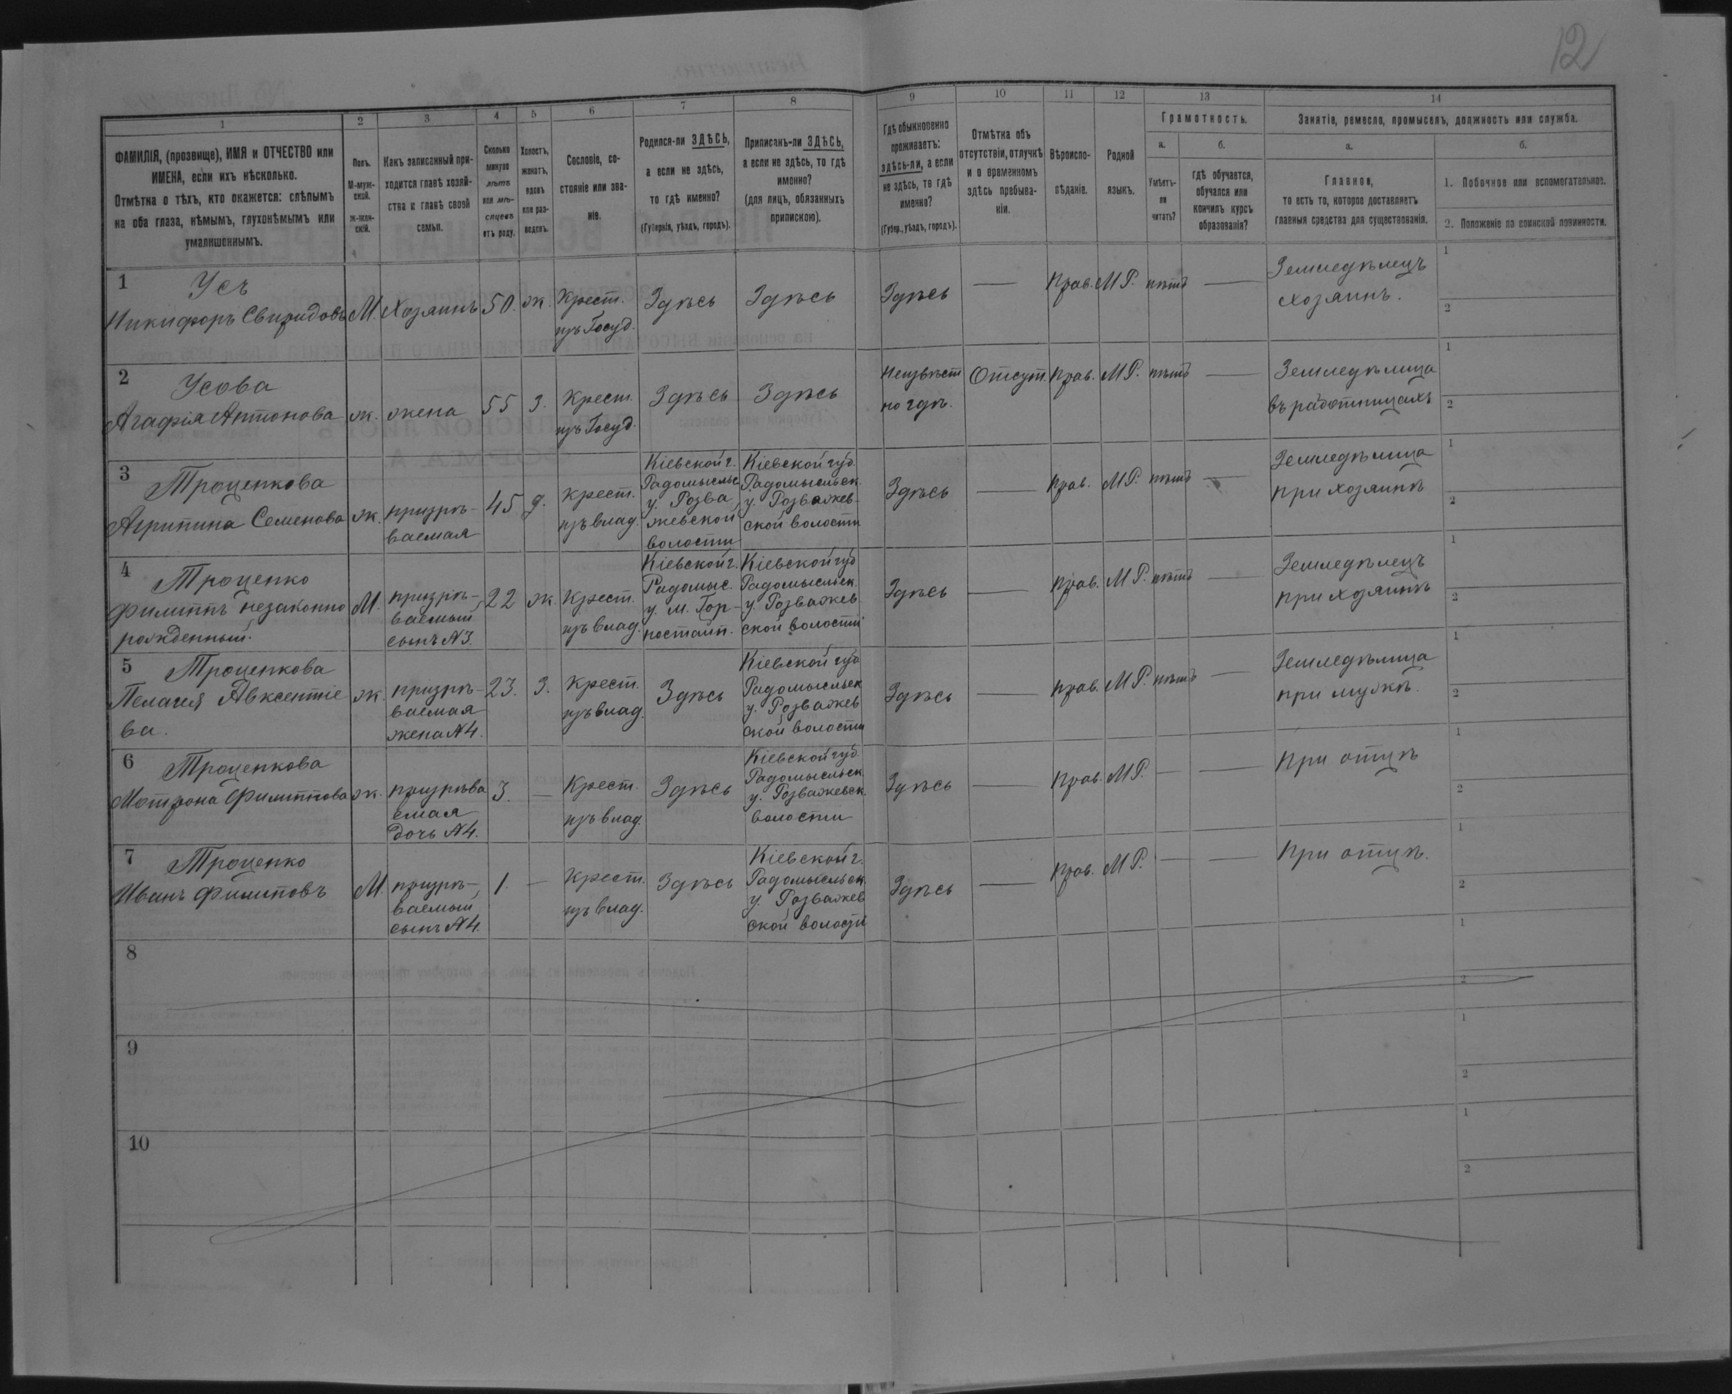 12
1
2
3
4
5
6
7
8
9
10
11
12
13
14
ФАМИЛІЯ, (прозвище), ИМЯ и ОТЧЕСТВО или
ИМЕНА, если ихъ нѣсколько.
Отмѣтка о тѣхъ, кто окажется: слѣпымъ
на оба глаза, нѣмымъ, глухонѣмымъ или
умалишеннымъ.
Полъ.
М-муж-
ской.
Ж-жен-
скій.
Какъ записанный при-
ходится главѣ хозяй-
ства и главѣ своей
семьи.
Сколько
минуло
лѣтъ
или мѣ-
сяцевъ
отъ роду.
Холостъ,
женатъ,
вдовъ
или раз-
веденъ.
Сословіе, со-
стояніе или зва-
ніе.
Родился-ли ЗДѢСЬ,
а если не здѣсь,
то гдѣ именно?
(Губернія, уѣздъ, городъ).
Приписанъ-ли ЗДѢСЬ,
а если не здѣсь, то гдѣ
именно?
(для лицъ, обязанныхъ
припискою).
Гдѣ обыкновенно
проживаетъ:
здѣсь-ли, а если
не здѣсь, то гдѣ
именно?
(Губер., уѣздъ, городъ).
Отмѣтка объ
отсутствіи, отлучкѣ
и о временномъ
здѣсь пребыва-
ніи.
Вѣроиспо-
вѣданіе.
Родной
языкъ.
Грамотность.
а.
Умѣетъ-
ли
читать?
б.
гдѣ обучается,
обучался или
кончилъ курсъ
образованія?
Занятіе, ремесло, промыселъ, должность или служба.
а.
Главное,
то есть то, которое доставляетъ
главныя средства для существованія.
б.
1. Побочное или вспомогательное.
2. Положеніе по воинской повинности.
1 Усъ
Никифоръ Свиридовъ М. Хозяинъ 50. ж Крест. Здѣсь Здѣсь Здѣсь — Прав. М.Р. нѣтъ — Земледѣлецъ
изъ Госуд. хозяинъ.
1
2
2 Усова
Агафія Антонова ж. жена 55 З. Крест. Здѣсь Здѣсь Неизвѣст Отсут. Прав. М.Р. нѣтъ — Земледѣлица
изъ Госуд. но гдѣ. въ работницахъ
1
2
3 Троценкова
Агрипина Семенова ж. призрѣ-
ваемая 45 д. Крест.
изъ влад. Кіевской г.
Радомысльс
у. Розва
жевской
волости Кіевской губ.
Радомысльск
у. Розважев-
ской волости Здѣсь — Прав. М.Р. нѣтъ — Земледѣлица
при хозяинѣ
1
2
4 Троценко
Филиппъ незаконно
рожденный. М. призрѣ-
ваемый
сынъ №3. 22 ж. Крест.
изъ влад. Кіевской г.
Радомыс.
у. м. Гор-
ностайп. Кіевской губ
Радомысльск
у. Розважев
ской волости Здѣсь — Прав. М.Р. нѣтъ — Земледѣлецъ
при хозяинѣ
1
2
5 Троценкова
Пелагея Авксентіе
ва. ж. призрѣ-
ваемая
жена №4. 23. З. Крест.
изъ влад. Здѣсь Кіевской губ
Радомысльск
у. Розважев
ской волости Здѣсь — Прав. М.Р. нѣтъ — Земледѣлица
при мужѣ.
1
2
6 Троценкова
Мотрона Филиппова ж. призрѣва
емая
дочь №4. 3. — Крест.
изъ влад. Здѣсь Кіевской губ.
Радомысльск
у. Розважевск
волости Здѣсь — Прав. М.Р. — — При отцѣ
1
2
7 Троценко
Иванъ Филиповъ М. призрѣ-
ваемый
сынъ №4. 1. — Крест.
изъ влад. Здѣсь Кіевской г.
Радомысльск
у. Розважев
ской волости Здѣсь — Прав. М.Р. — — При отцѣ.
1
2
8
1
2
9
1
2
10
1
2